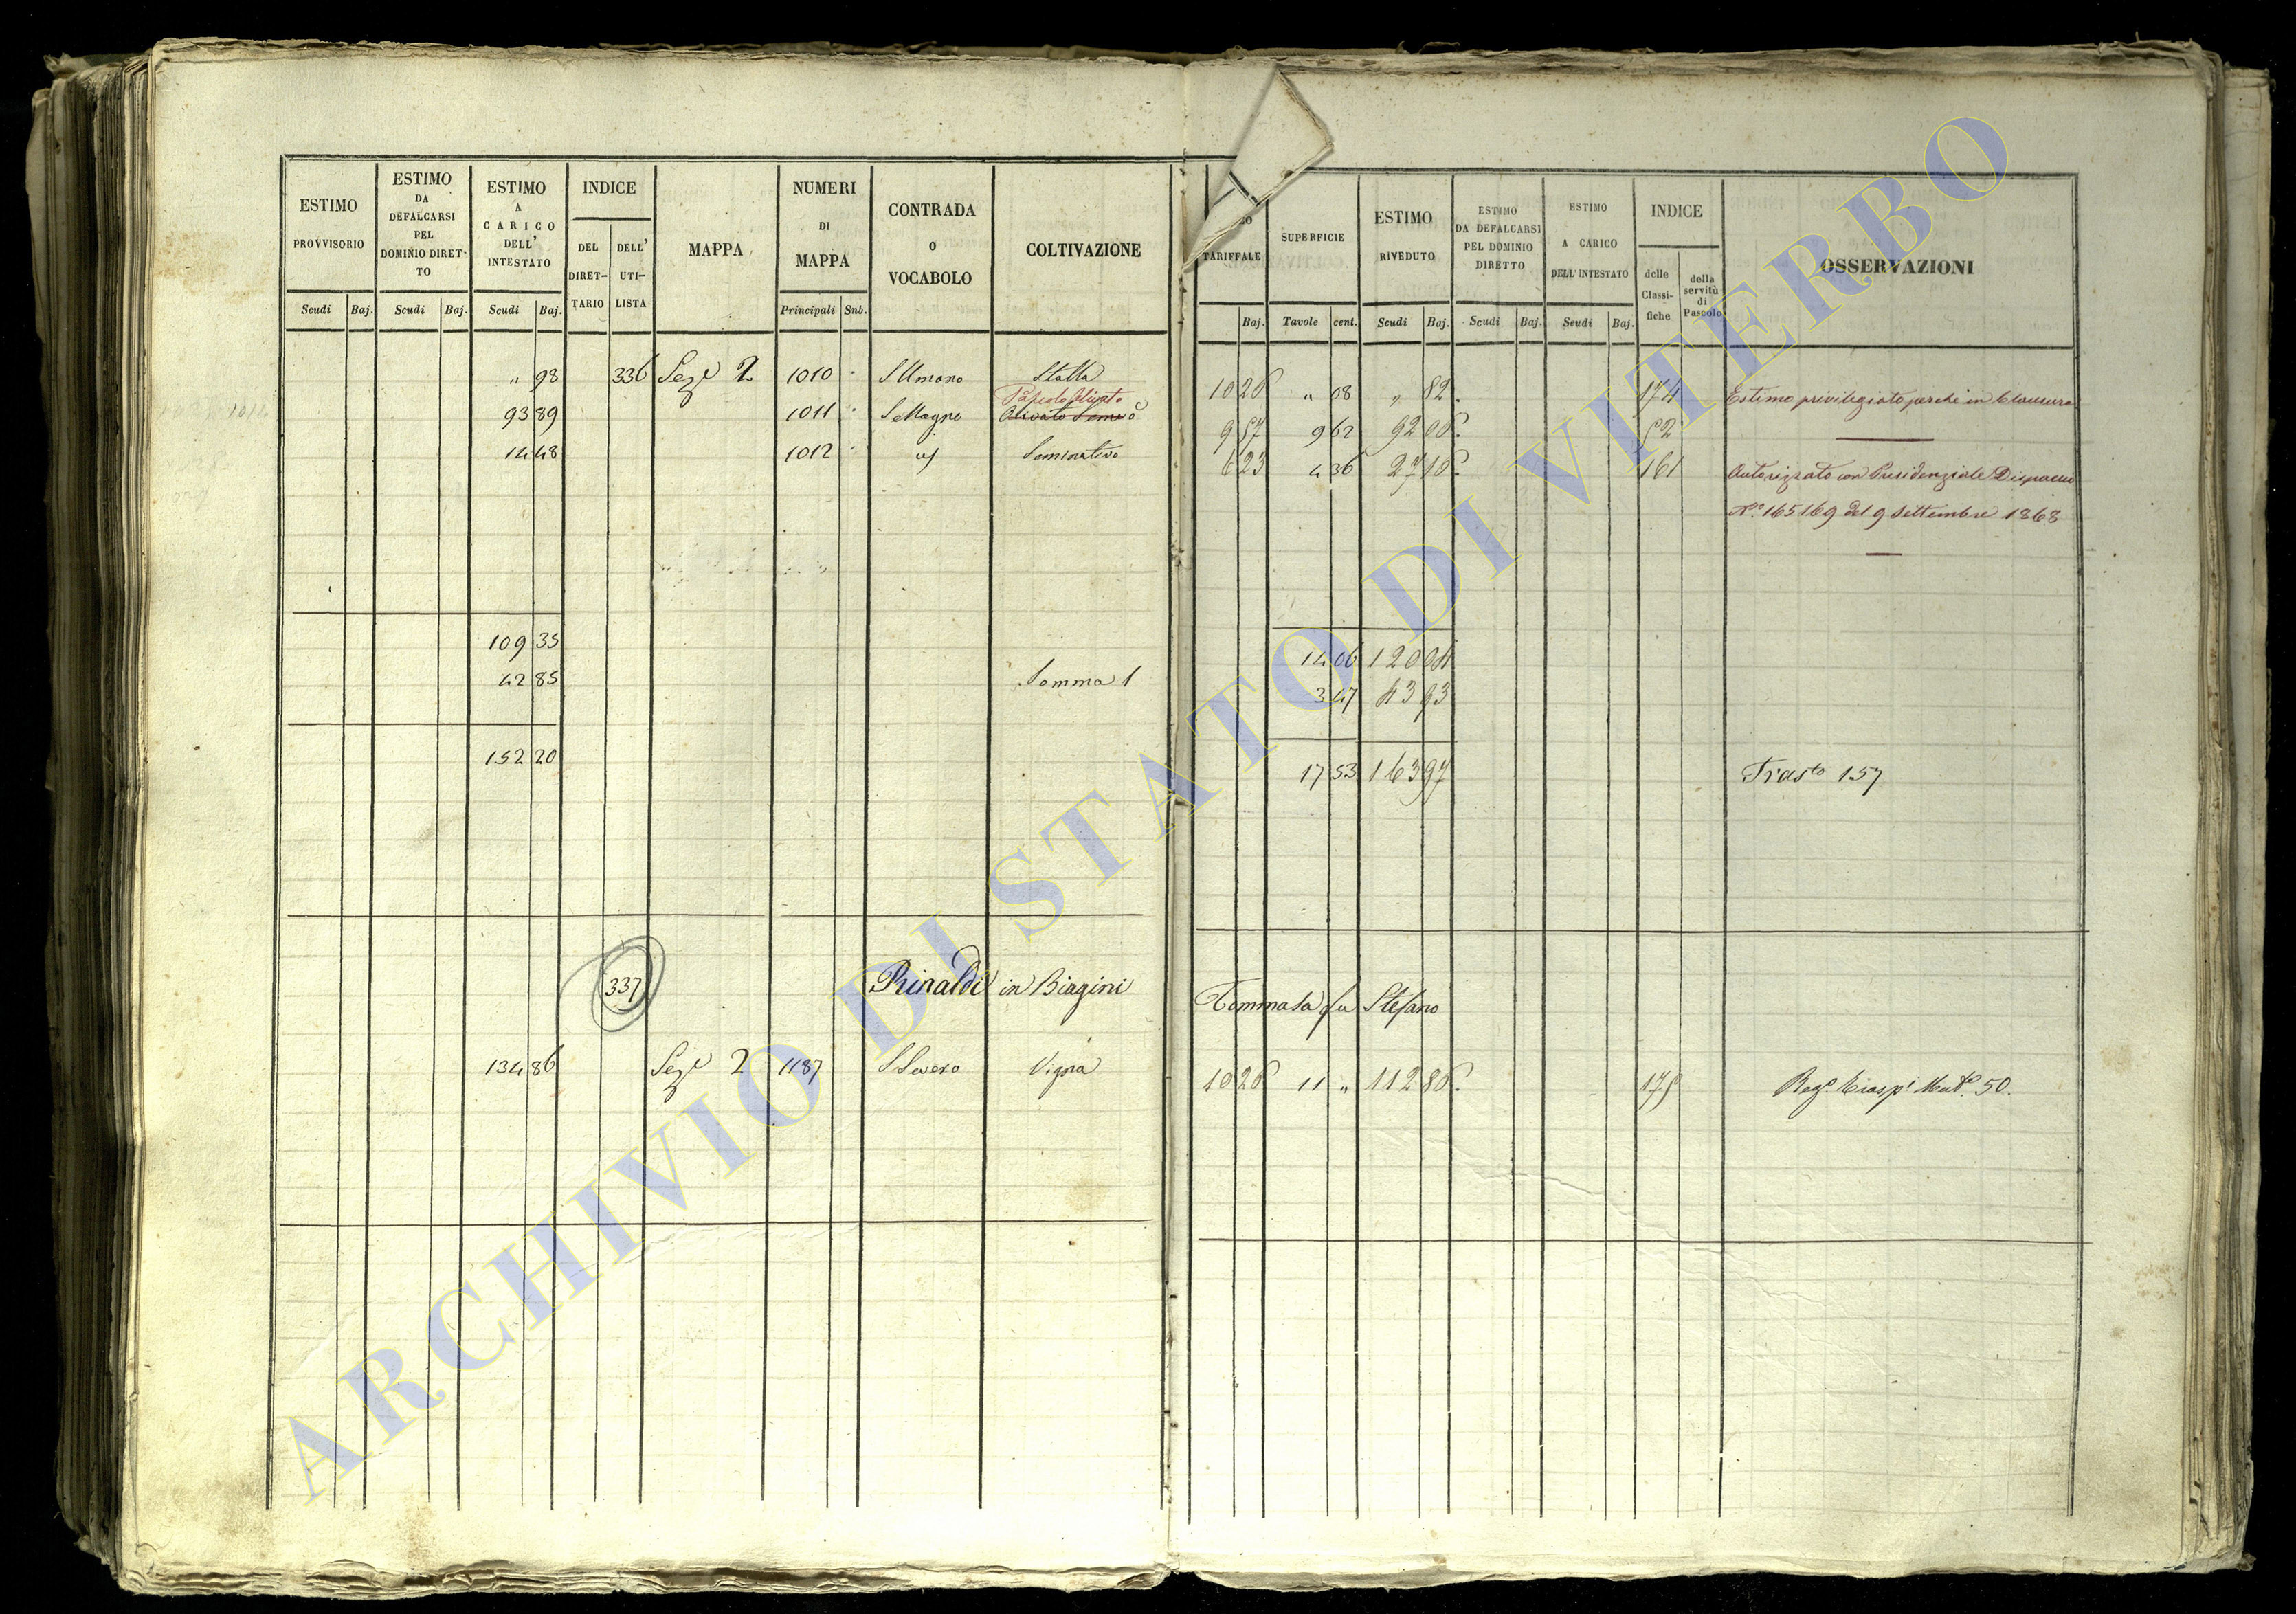 ESTIMO PROVVISORIO
ESTIMO DA DEFALCARSI PEL DOMINIO DIRETTO
ESTIMO A CARICO DELL' INTESTATO
INDICE
DEL DIRETTARIO
DELL' UTILISTA
MAPPA
NUMERI DI MAPPA
CONTRADA O VOCABOLO
COLTIVAZIONE
Scudi Baj. Scudi Baj. Scudi Baj. Principali Sub.
TARIFFALE
SUPERFICIE
ESTIMO RIVEDUTO
ESTIMO DA DEFALCARSI PEL DOMINIO DIRETTO
ESTIMO A CARICO DELL' INTESTATO
INDICE
delle Classifiche
della servitù di Pascolo
OSSERVAZIONI
Baj. Tavole cent. Scudi Baj. Scudi Baj. Scudi Baj.
" 98 336 Sez.e 2 1010 Stalla
" 08 " 82 174 Estimo privilegiato perchè in Clausura
Pascolo Olivato
93 89 1011 S Magno Olivato
9 62 92
14 48 1012 id Seminativo
6 23 4 36 161 Autorizzato con Presidenziale Dispaccio
N.° 165169 del 9 Settembre 1868
109 35
14 06 120 04
42 85 Somma 1
3 47 43 93
152 20
17 53 163 97 Trasto 157
337 Rinaldi in Biagini Tommasa fu Stefano
134 86 Sez.e 2 1187 S Severo Vigna
11 " 112 175 50.
ARCHIVIO DI STATO DI VITERBO